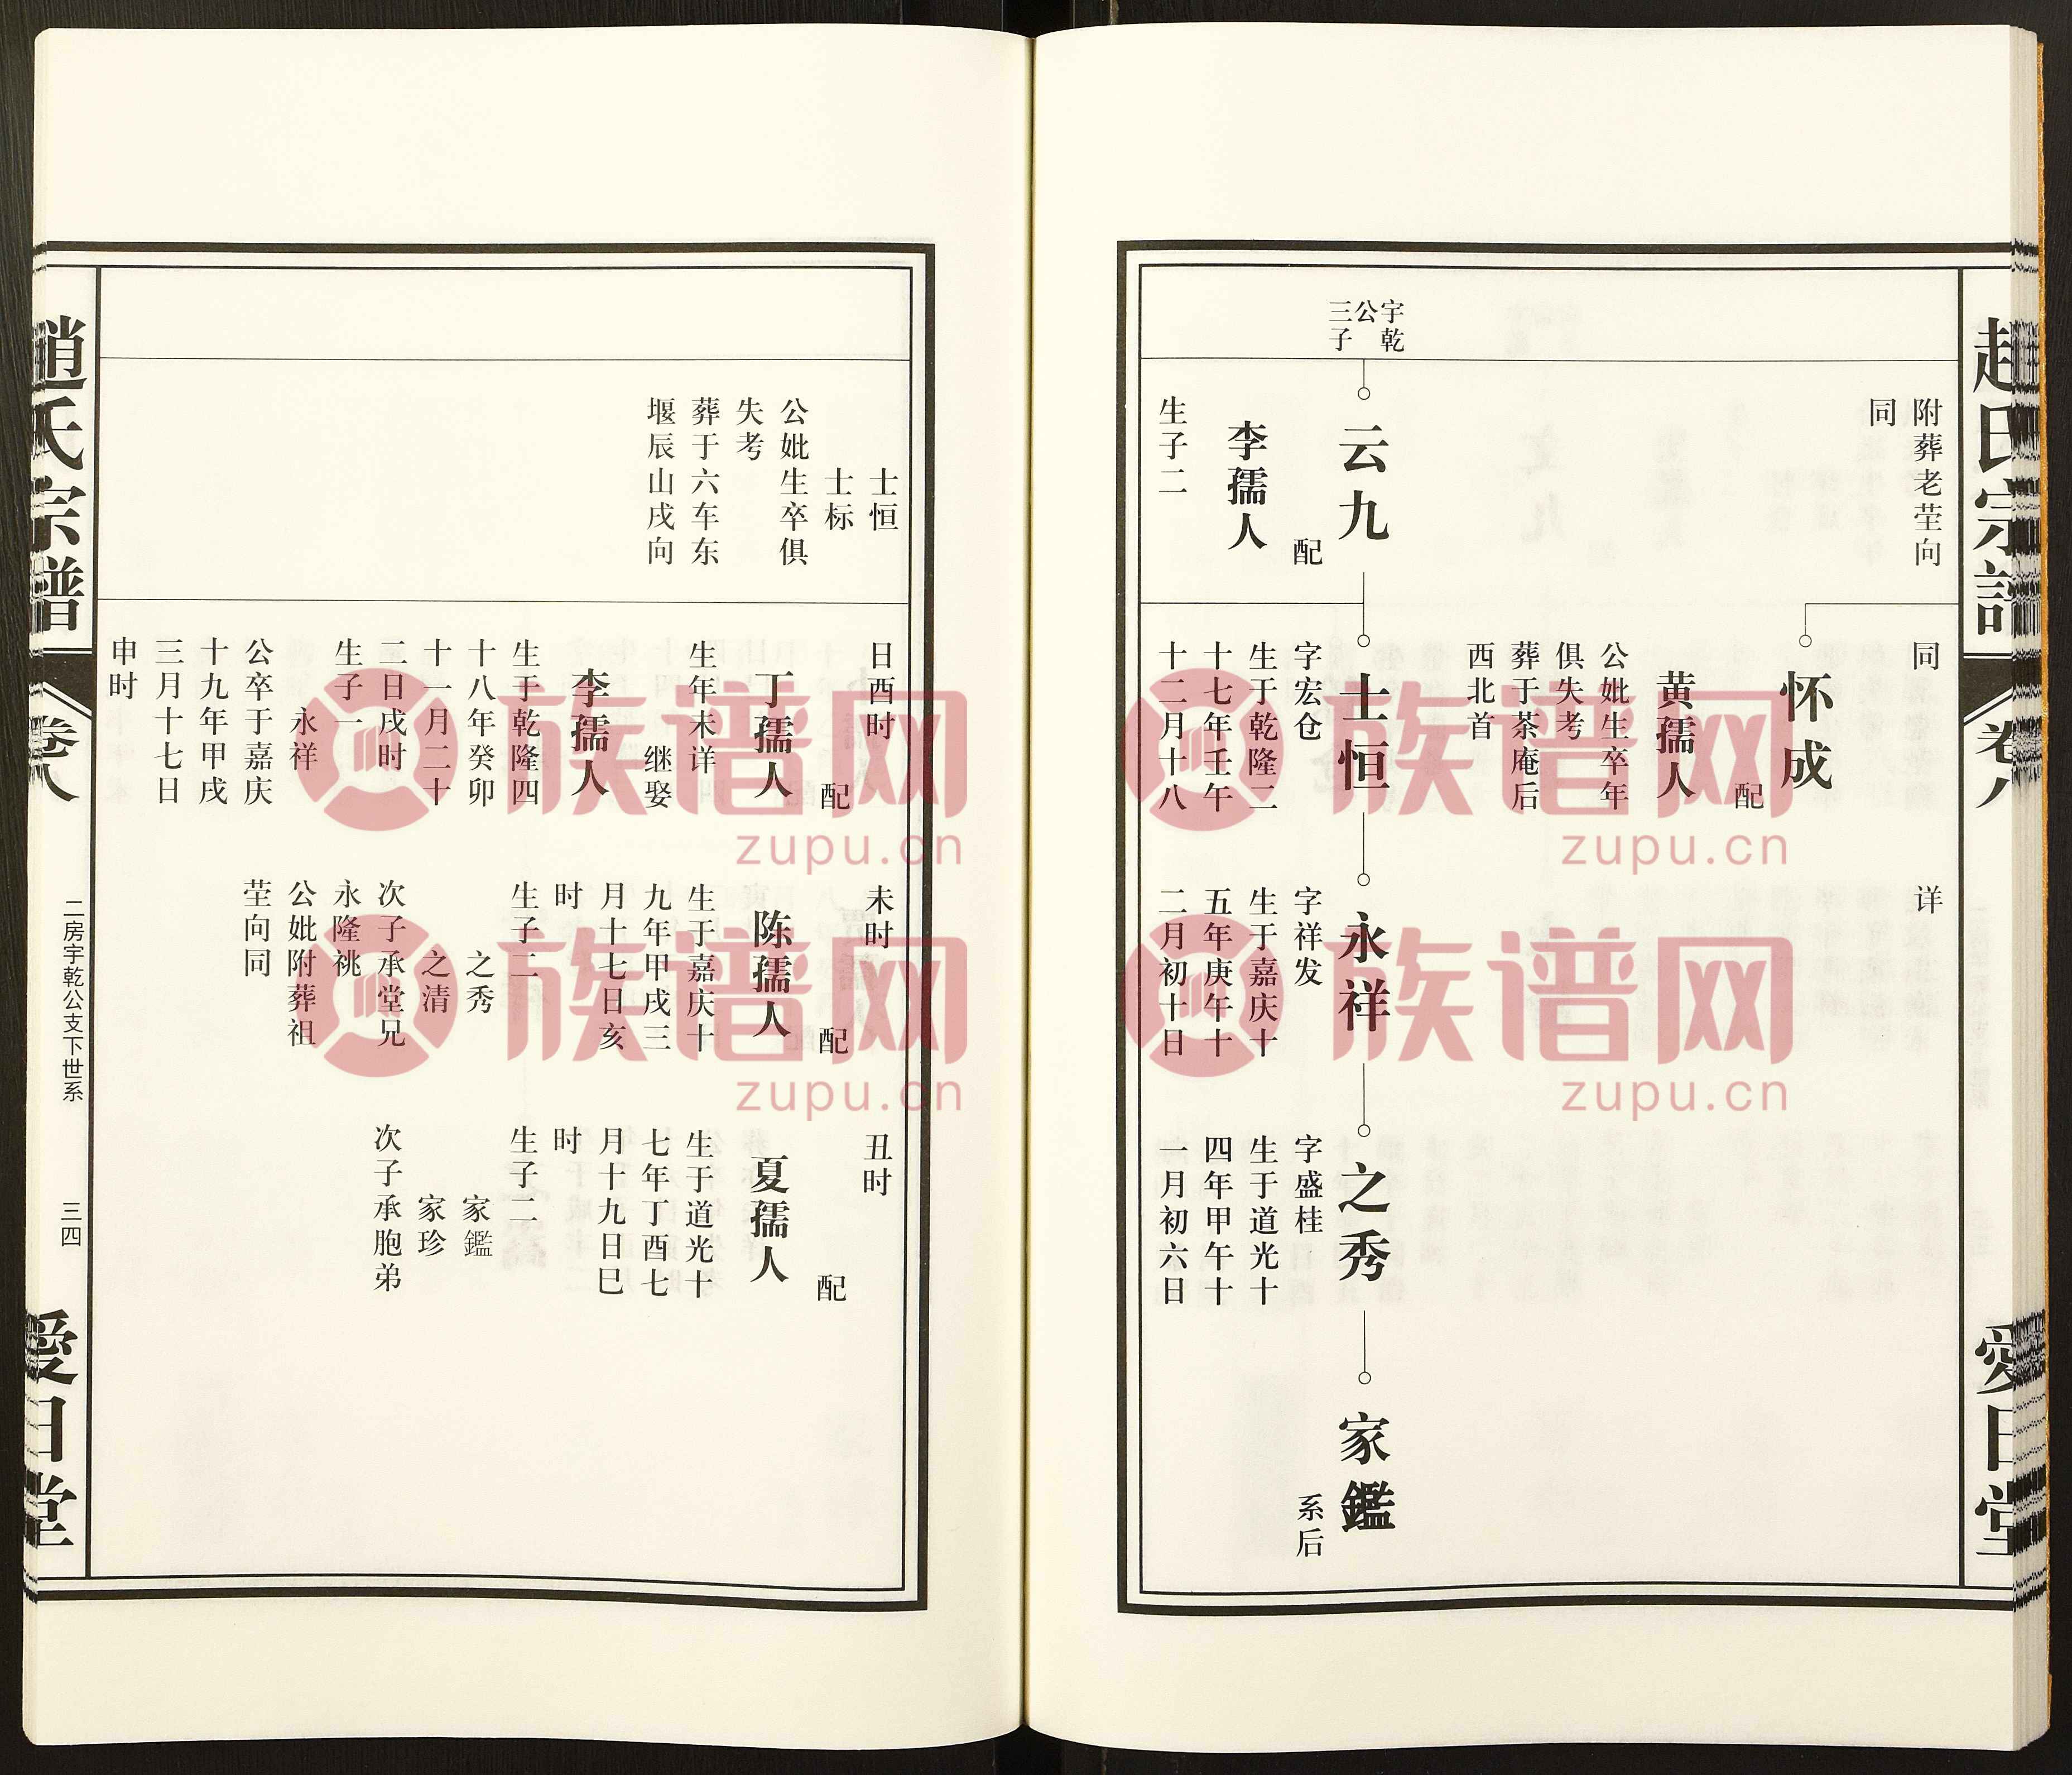 趙氏宗譜
卷八
愛日堂
附葬老茔向
同
宇乾
公
三子
云九
配
李孺人
生子二
同
怀成
配
黄孺人
公妣生卒年
俱失考
葬于茶庵后
西北首
士恒
字宏仓
生于乾隆二
十七年壬午
十二月十八
详
永祥
字祥发
生于嘉庆十
五年庚午十
二月初十日
之秀
字盛桂
生于道光十
四年甲午十
一月初六日
家鑑
系后
士恒
士标
公妣生卒俱
失考
葬于六车东
堰辰山戌向
日酉时
配
丁孺人
生年未详
继娶
李孺人
生于乾隆四
十八年癸卯
十一月二十
二日戌时
生子一
永祥
公卒于嘉庆
十九年甲戌
三月十七日
申时
未时
配
陈孺人
生于嘉庆十
九年甲戌三
月十七日亥
时
生子二
之秀
之清
次子承堂兄
永隆祧
公妣附葬祖
茔向同
丑时
配
夏孺人
生于道光十
七年丁酉七
月十九日巳
时
生子二
家鑑
家珍
次子承胞弟
趙氏宗譜
卷八
二房宇乾公支下世系
三四
愛日堂
族谱网
zupu.cn
族谱网
zupu.cn
族谱网
zupu.cn
族谱网
zupu.cn